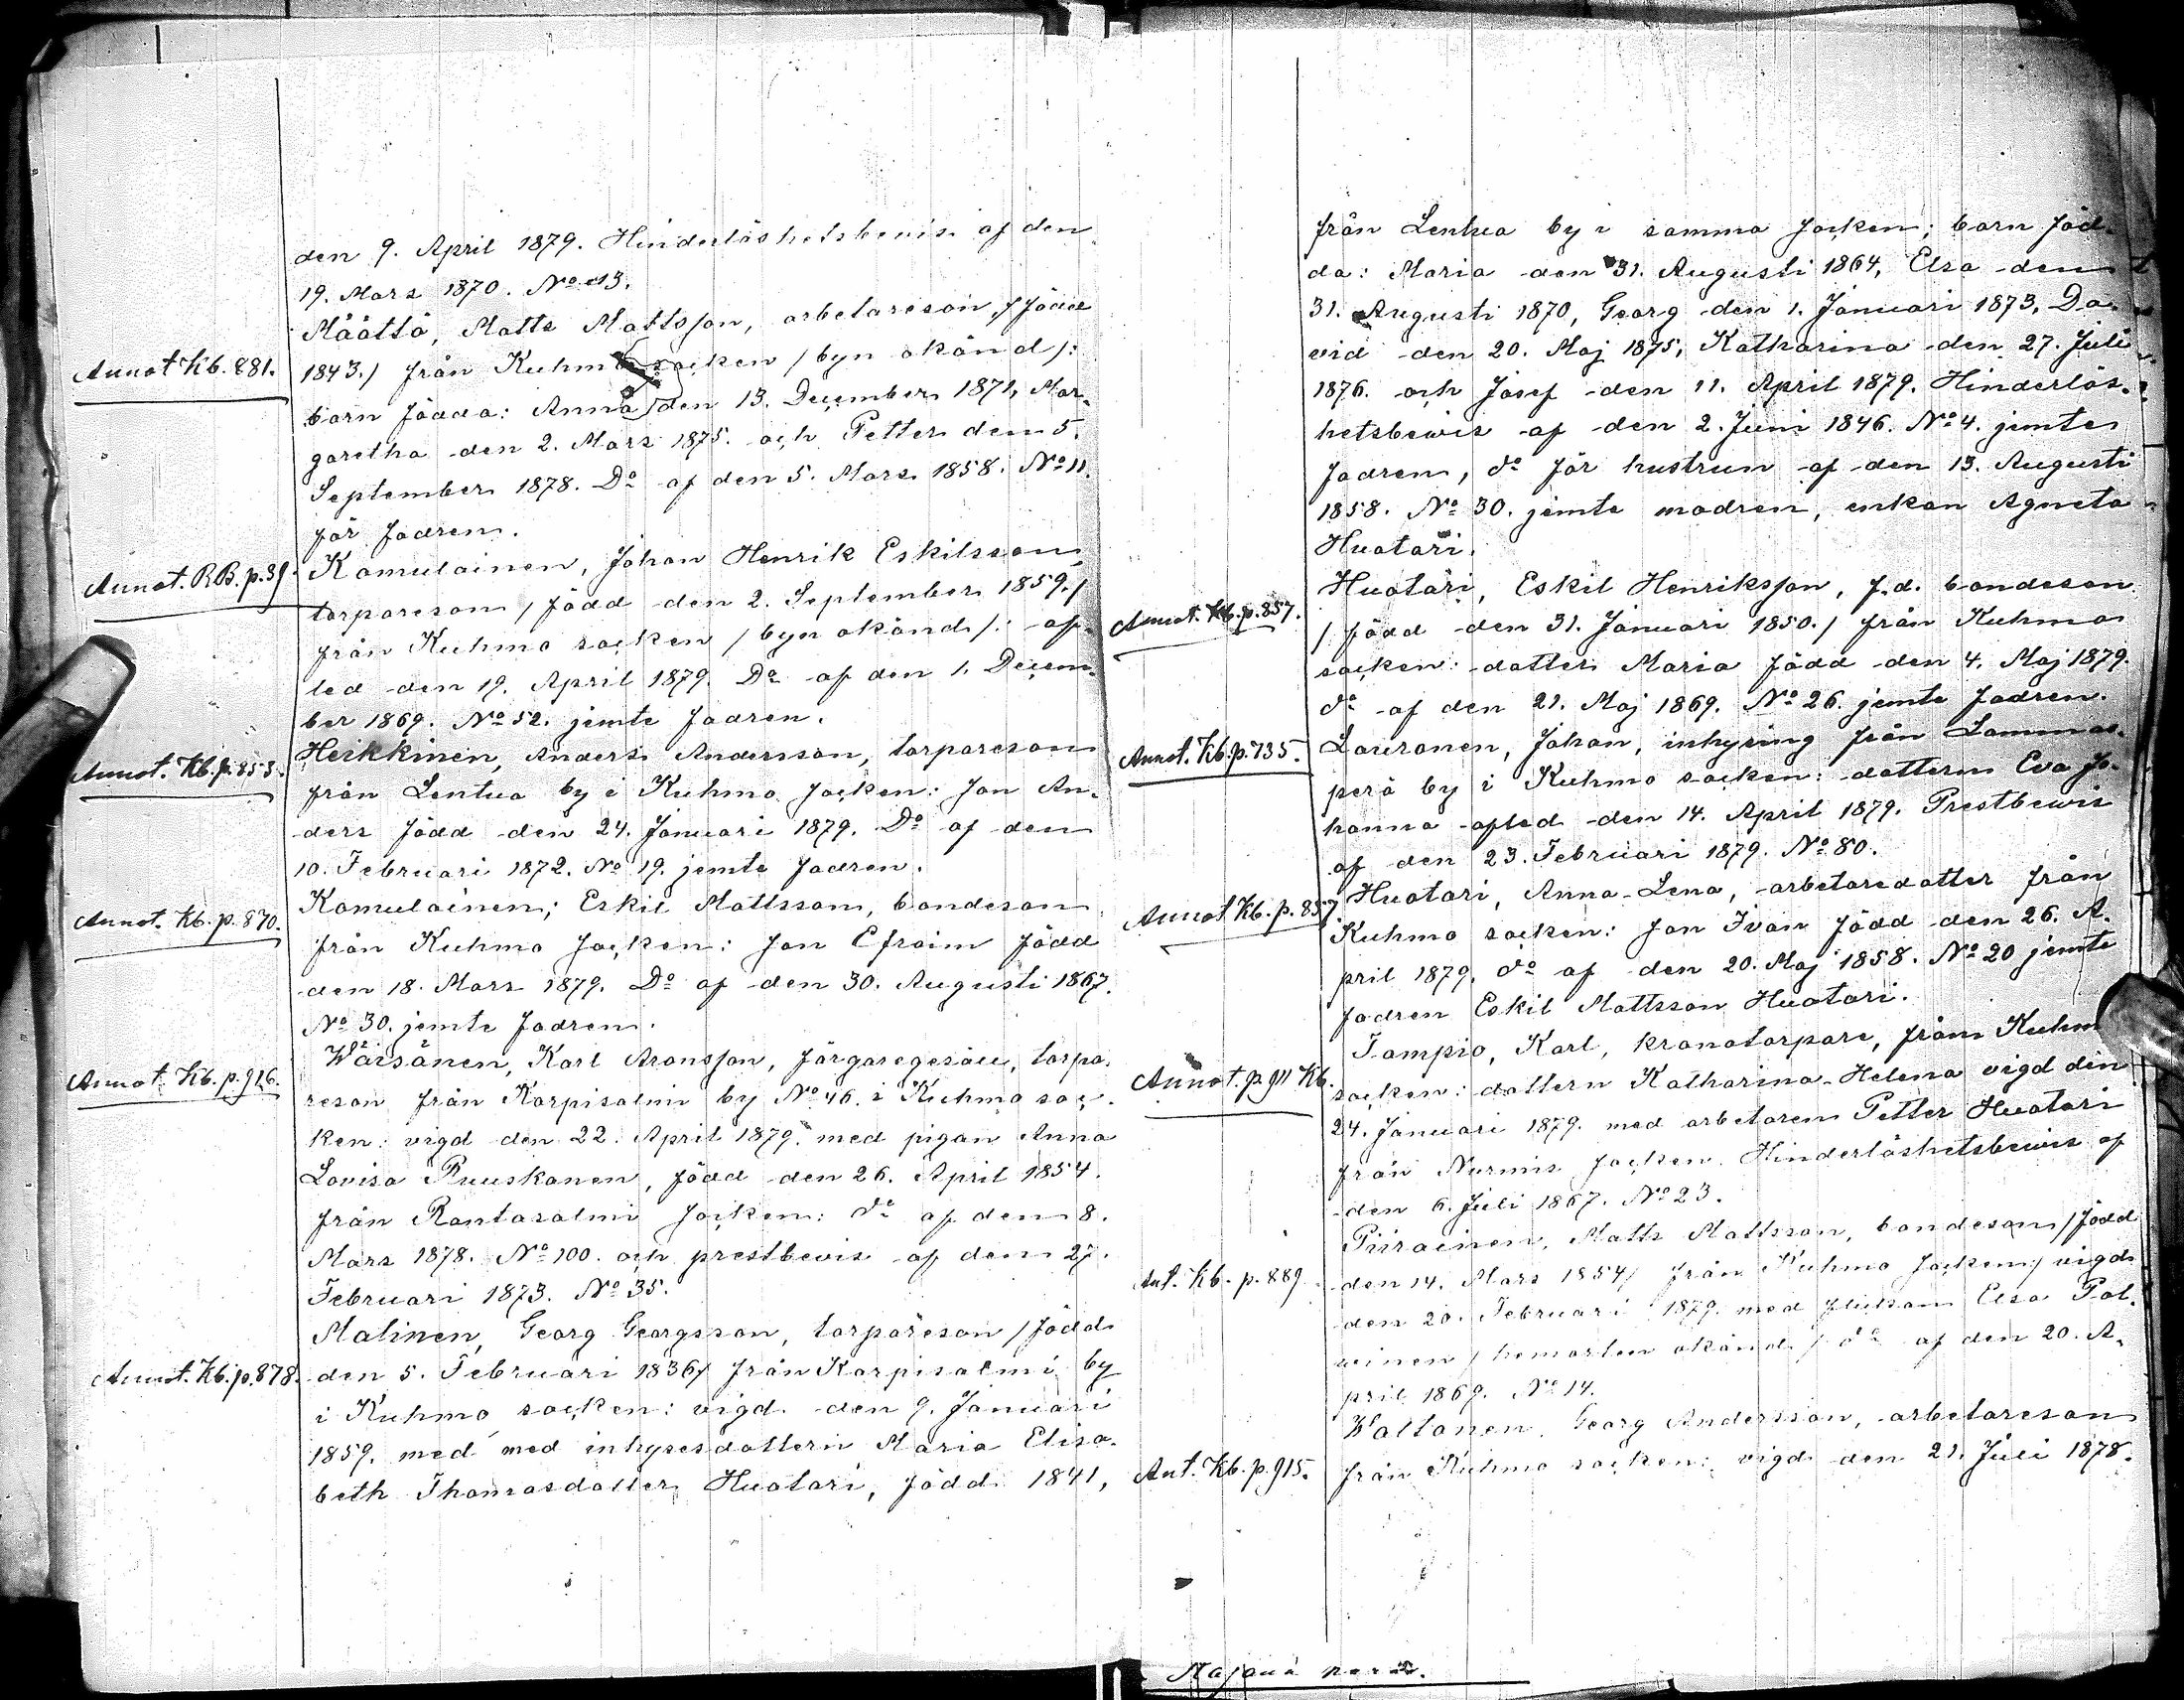 den 9. April 1879. Hinderlöshetsbevis af den
19. Mars 1870. No 13.
Määttä, Matts Mattsson, arbetareson /född
Annot Kb. 881.
1843./ från Kuhmo socken /byn okänd/:
barn födda: Anna den 13. December 1871, Mar-
garetha den 2. Mars 1875. och Petter den 5.
September 1878. Do af den 5. Mars 1858. No 11.
för fadren.
Annot. RB. p. 39.
Komulainen, Johan Henrik Eskilsson,
torpareson /född den 2. September 1859./
från Kuhmo socken /byn okänd/: af-
led den 19. April 1879. Do af den 1. Decem-
ber 1869. No 52. jemte fadren.
Annot. Kb. p. 853.
Heikkinen, Anders Andersson, torpareson
från Lentua by i Kuhmo socken: son An-
ders född den 24. Januari 1879. Do af den
10. Februari 1872. No 19. jemte fadren.
Annot. Kb. p. 870.
Komulainen, Eskil Mattsson, bondeson
från Kuhmo socken: son Efraim född
den 18. Mars 1879. Do af den 30. Augusti 1867.
No 30. jemte fadren.
Annot. Kb. p. 916.
Wäisänen, Karl Aronsson, färgaregesäll, torpa-
reson från Korpisalmi by No 46. i Kuhmo soc-
ken: vigd den 22. April 1879. med pigan Anna
Lovisa Ruuskanen, född den 26. April 1854.
från Rantasalmi socken: do af den 8.
Mars 1878. No 100. och prestbevis af den 27.
Februari 1873. No 35.
Malinen, Georg Georgsson, torpareson /född
Annot. Kb. p. 878.
den 5. Februari 1836/ från Korpisalmi by
i Kuhmo socken: vigd den 9. Januari
1859. med med inhysesdottern Maria Elisa-
beth Thomasdotter Huotari, född 1841,
från Lentua by i samma socken; barn föd-
da: Maria den 31. Augusti 1864, Elsa den
31. Augusti 1870, Georg den 1. Januari 1873, Da-
vid den 20. Maj 1875, Katharina den 27. Juli
1876. och Josef den 11. April 1879. Hinderlös-
hetsbewis af den 2. Juni 1846. No 4. jemte
fadren, do för hustrun af den 13. Augusti
1858. No 30. jemte modren, enkan Agneta
Huotari.
Annot. Kb. p. 857.
Huotari, Eskil Henriksson, f.d. bondeson
/född den 31. Januari 1850./ från Kuhmo
socken: dotter Maria född den 4. Maj 1879.
do af den 21. Maj 1869. No 26. jemte fadren.
Annot. Kb. p. 735.
Louronen, Johan, inhysing från Lammas-
perä by i Kuhmo socken: dottern Eva Jo-
hanna afled den 14. April 1879. Prestbewis
af den 23. Februari 1879. No 80.
Annot Kb. p. 857
Huotari, Anna-Lena, arbetaredotter från
Kuhmo socken: son Ivan född den 26. A-
pril 1879. do af den 20. Maj 1858. No 20 jemte
fadren Eskil Mattsson Huotari.
Tampio, Karl, kronotorpare, från Kuhmo
Annot. p 911 Kb.
socken: dottern Katharina-Helena vigd den
24. Januari 1879. med arbetaren Petter Huotari
från Nurmis socken. Hinderlöshetsbewis af
den 6. Juli 1867. No 23.
Piirainen, Matts Mattsson, bondeson /född
Ant. Kb. p. 889
den 14. Mars 1854/ från Kuhmo socken; vigd
den 20. Februari 1879. med flickan Elsa Pol-
winen /hemorten okänd/ do af den 20. A-
pril 1869. No 14.
Waltonen, Georg Andersson, arbetareson
Ant. Kb. p. 915.
från Kuhmo socken: vigd den 21. Juli 1878.